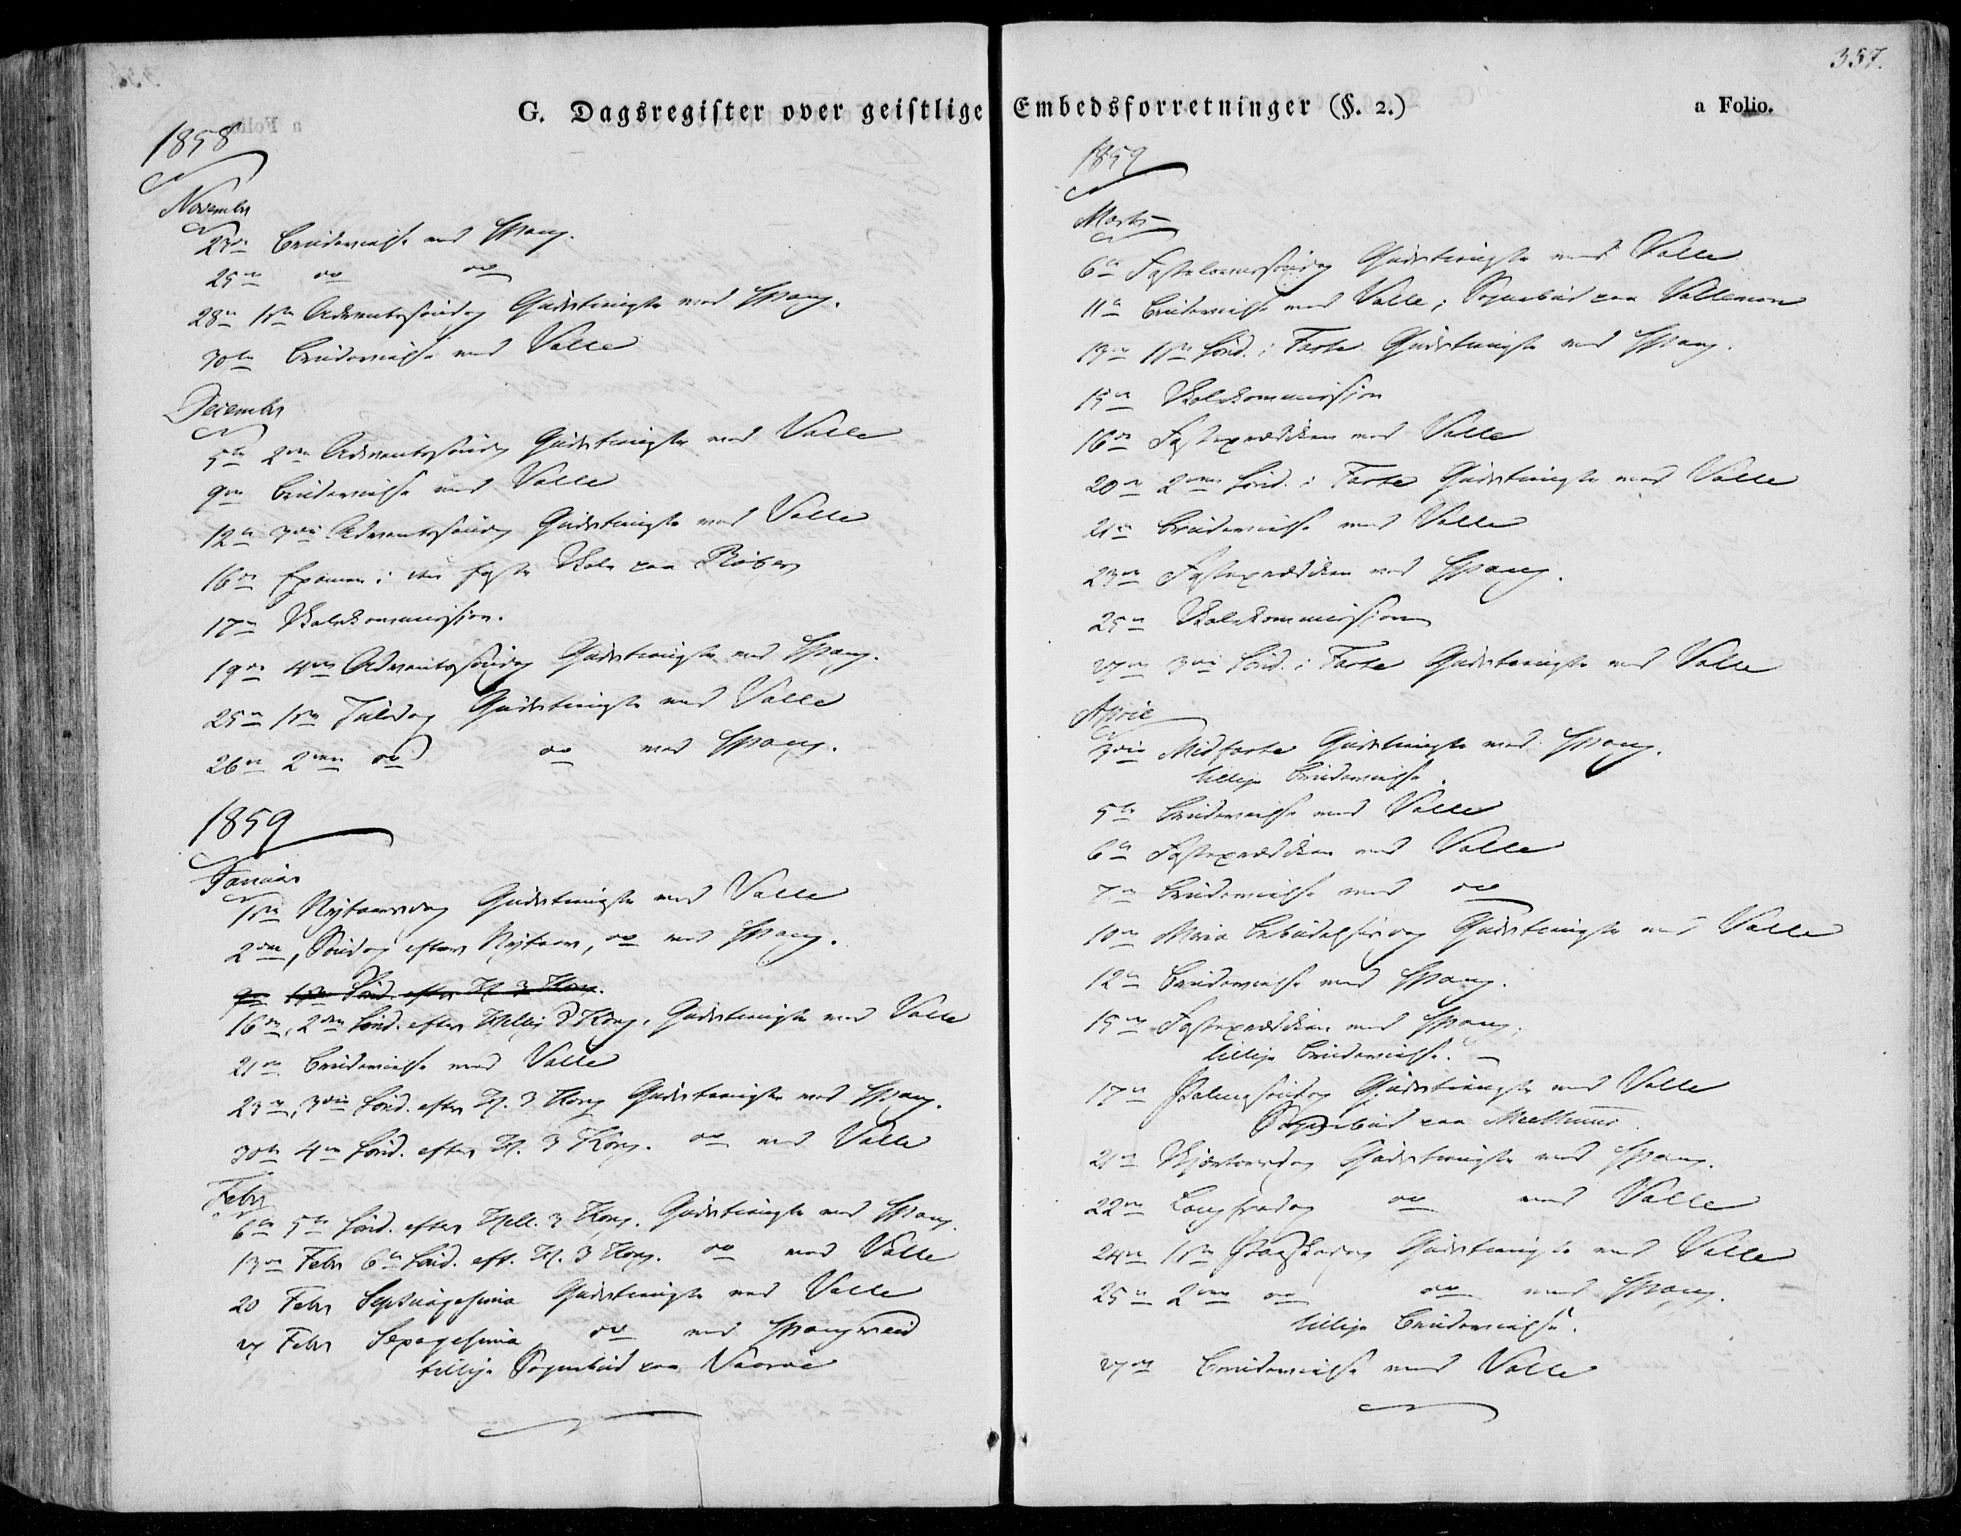 G. Dagsregister over geistlige Embedsforretninger (§. 2.)
a Folio.
357.
1858
November
23de Brudevielse ved Spang.
25de do do
28de 1ste Adventssøndag Gudstieneste ved Spang.
30te Brudevielse ved Valle
December
5te 2den Adventssøndag Gudstieneste ved Valle
9de Brudevielse ved Valle
12te 3die Adventssøndag Gudstieneste ved Valle
16de Examen i den faste Skole paa
17de Skolekommission.
19de 4de Adventssøndag Gudstieneste ved Spang.
25de 1ste Juledag Gudstieneste ved Valle
26de 2den do do ved Spang.
1859
Januar
1ste Nytaarsdag Gudstieneste ved Valle
2den, Søndag efter Nytaar, do ved Spang.
9de 1ste Sønd. efter H. 3 Kong.
16de, 2den Sønd. efter Hellig 3 Kong. Gudstieneste ved Valle
21de Brudevielse ved Valle
23de, 3die Sønd. efter H. 3 Kong Gudstieneste ved Spang.
30te 4de Sønd. efter H. 3 Kong. do ved Valle
Febr
6te 5te Sønd. efter Hell. 3 Kong. Gudstieneste ved Spang.
13de Febr 6te Sønd. eft. H. 3 Kong. do ved Valle
20 Febr Septuagesima Gudstieneste ved Valle
27 Febr Sexagesima do ved Spangreid
tillige Sognebud paa
1859
Marts
6te Fastelavnssøndag Gudstieneste ved Valle
11te Brudevielse ved Valle; Sognebud paa Vallemoen
13de 1ste Sønd. i Faste Gudstieneste ved Spang.
15de Skolekommission
16de Fasteprædiken ved Valle
20de 2den Sønd. i Faste Gudstieneste ved Valle
21de Brudevielse ved Valle
23de Fasteprædiken ved Spang.
25de Skolekommission
27de 3die Sønd. i Faste Gudstieneste ved Valle
April
3die Midfaste Gudstieneste ved Spang.
tillige Brudevielse.
5te Brudevielse ved Valle
6te Fasteprædiken ved Valle
7de Brudevielse ved do
10de Maria Bebudelsesdag Gudstieneste ved Valle
12te Brudevielse ved Spang.
15de Fasteprædiken ved Spang.
tillige Brudevielse.
17de Palmesøndag Gudstieneste ved Valle
Sognebud paa
21de Skjærtorsdag Gudstieneste ved Spang.
22de Langfredag do ved Valle
24de 1ste Paaskedag Gudstieneste ved Valle
25de 2den do do ved Spang.
tillige Brudevielse.
27de Brudevielse ved Valle